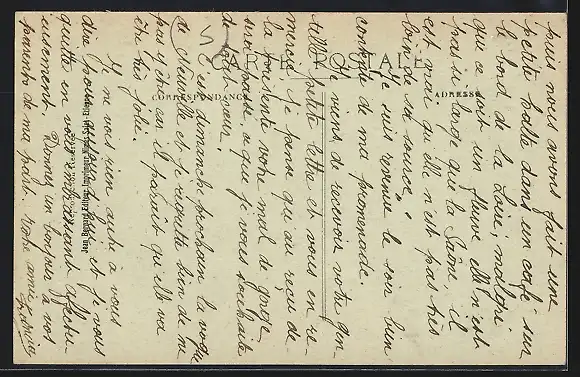 CARTE POSTALE
CORRESPONDANCE
ADRESSE
puis nous avons fait une
petite halte dans un café sur
le bord de la Loire, malgré
que ce soit un fleuve elle n'est
pas si large que la Saône, il
est vrai qu'elle n'est pas très
loin de sa source.
Je suis revenue le soir bien
contente de ma promenade.
Je viens de recevoir votre gen-
tille petite lettre et vous en re-
mercie. Je pense qu'au reçu de
la présente votre mal de gorge
sera passé ce que je vous souhaite
de tout cœur.
C'est dimanche prochain la vogue
de et je regrette bien de ne
pas y être car il paraît qu'elle va
être très jolie.
Je ne vous rien autre à vous
dire pour aujourd'hui et je vous
quitte en vous embrassant affectu-
eusement. Donnez un bonjour à vos
parents de ma part. Votre amie